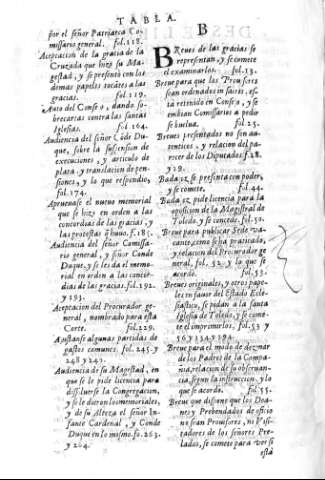 TABLA.
por el señor Patriarca Co-
missario general. fol.118.
Aceptacion de la gracia de la
Cruzada que hizo su Ma-
gestad, y se presentò con los
demas papeles tocātes a las
gracias. fol.119.
Auto del Consejo, dando so-
brecartas contra las santas
Iglesias. fol 164.
Audiencia del señor Cõde Du-
que, sobre la suspension de
execuciones, y articulo de
plata, y translacion de pen-
siones, y lo que respondio,
fol.174.
Apruenase el nueuo memorial
que se hizo en orden a las
concordias de las gracias, y
las protestas q̃ huuo. f.185.
Audiencia del señor Comissa-
rio general, y señor Conde
Duque, y se les dà el memo-
rial en orden a las concor-
dias de las gracias. fol.192.
y 193.
Aceptacion del Procurador ge-
neral, nombrado para esta
Corte. fol.229.
Ajustanse algunas partidas de
gastos comunes. fol. 245. y
248 y 249.
Audiencia de su Magestad, en
que se le pide licencia para
dissoluerse la Congregacion,
y se le dieron los memoriales,
y de su Alteza el señor In-
fante Cardenal, y Conde
Duque en lo mismo. fo. 263.
y 264.
B
BReues de las gracias se
representan, y se comete
el examinarlos. fol.13.
Breue para que los Procuradores
sean ordenados in sacris, es-
tà retenido en Consejo, y se
embian Comissarios a pedir
se buelua. fol.25.
Breues presentados no son au-
tenticos, y relacion del pa-
recer de los Diputados f.28.
y 29.
Badajoz se presenta con poder,
y se comete. fol.44.
Badajoz pide licencia para la
oposicion de la Magistral de
Toledo, y se concede. fol.50.
Breue para publicar Sede va-
cante, como se ha praticado,
y relacion del Procurador ge-
neral, fol. 52. y lo que se
acordò. fol.53.
Breues originales, y otros pape-
les en fauor del Estado Ecle-
siastico, se pidan a la santa
Iglesia de Toledo, y se come-
te el imprimirlos, fol.53 y
56 y 134 y 194.
Breue para el modo de dezmar
de los Padres de la Compa-
ñia, relacion de su obseruan-
cia, segun la instruccion, y lo
que se acordò. fol.55.
Breue que dispone que los Dea-
nes y Prebendados de oficio
no sean Prouisores, ni Visi-
tadores de los señores Pre-
lados, se comete para ver si
està